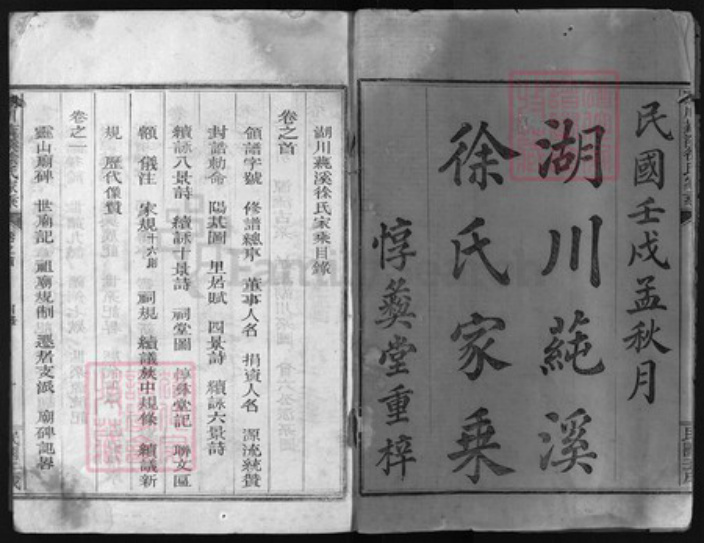 民國壬戌孟秋月
湖川蒓溪
徐氏家乘
惇彝堂重梓
湖川蒓溪徐氏家乘目錄
卷之首
領譜字號 修譜總序 董事人名 捐資人名 源流統贊
封誥勅命 陽基圖 里居賦 四景詩 續詠六景詩
續詠八景詩 續詠十景詩 祠堂圖 惇彝堂記 聯文區
額 儀注 家規十六條 祠規 續議族中規條 續議新
規 歷代像贊
卷之一
靈山廟碑 世廟記 祖廟規制 遷居支派 廟碑記畧